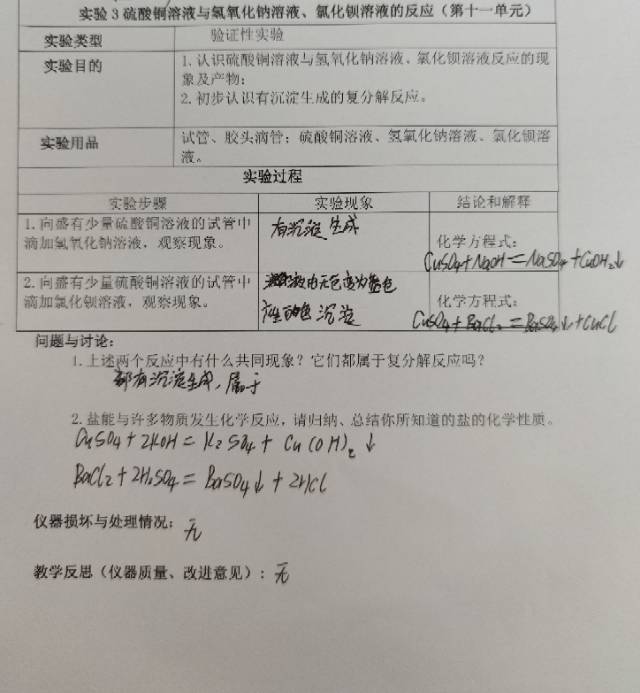 实验3硫酸铜溶液与氢氧化钠溶液、氯化钡溶液的反应（第十一单元）
实验类型 验证性实验
实验目的 1.认识硫酸铜溶液与氢氧化钠溶液、氯化钡溶液反应的现
象及产物；
2.初步认识有沉淀生成的复分解反应。
实验用品 试管、胶头滴管；硫酸铜溶液、氢氧化钠溶液、氯化钡溶
液。
实验过程
实验步骤 实验现象 结论和解释
1.向盛有少量硫酸铜溶液的试管中
滴加氢氧化钠溶液，观察现象。
有沉淀生成
化学方程式：
CuSO4+NaOH=NaSO4+CuOH2↓
2.向盛有少量硫酸铜溶液的试管中
滴加氯化钡溶液，观察现象。
液由无色变为蓝色
产生白色沉淀
化学方程式：
CuSO4+BaCl2=BaSO4↓+CuCl
问题与讨论：
1.上述两个反应中有什么共同现象？它们都属于复分解反应吗？
都有沉淀生成，属于
2.盐能与许多物质发生化学反应，请归纳、总结你所知道的盐的化学性质。
CuSO4+2KOH=K2SO4+Cu(OH)2↓
BaCl2+2H2SO4=BaSO4↓+2HCl
仪器损坏与处理情况：无
教学反思（仪器质量、改进意见）：无